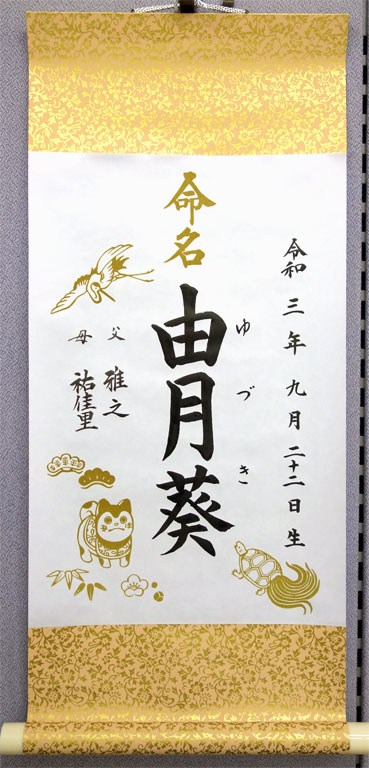 令和三年九月二十二日生
命名
由月葵
ゆづき
父 雅之
母 祐佳里